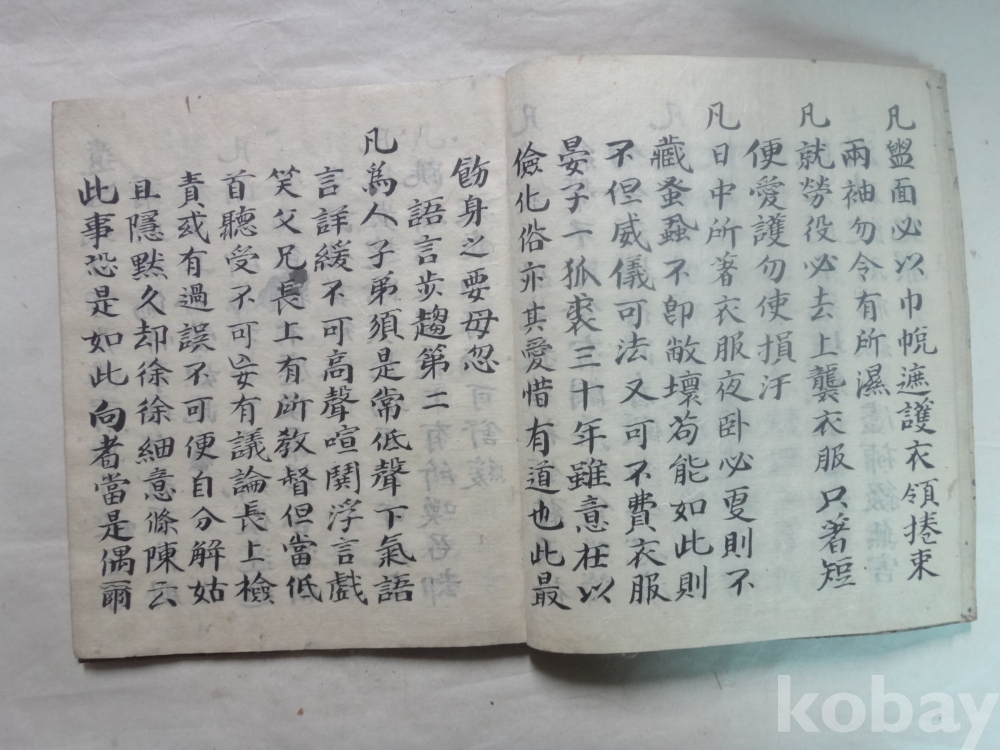 凡盥面必以巾帨遮護衣領捲束
兩袖勿令有所濕
凡就勞役必去上襲衣服只著短
便愛護勿使損汙
凡日中所著衣服夜卧必更則不
藏蚤蝨不卽敝壞茍能如此則
不但威儀可法又可不費衣服
晏子一狐裘三十年雖意在以
儉化俗亦其愛惜有道也此最
飭身之要毋忽
語言步趨第二
凡爲人子弟須是常低聲下氣語
言詳緩不可高聲喧鬨浮言戲
笑父兄長上有所敎督但當低
首聽受不可妄有議論長上檢
責或有過誤不可便自分解姑
且隱默久却徐徐細意條陳云
此事恐是如此向者當是偶爾
kobay